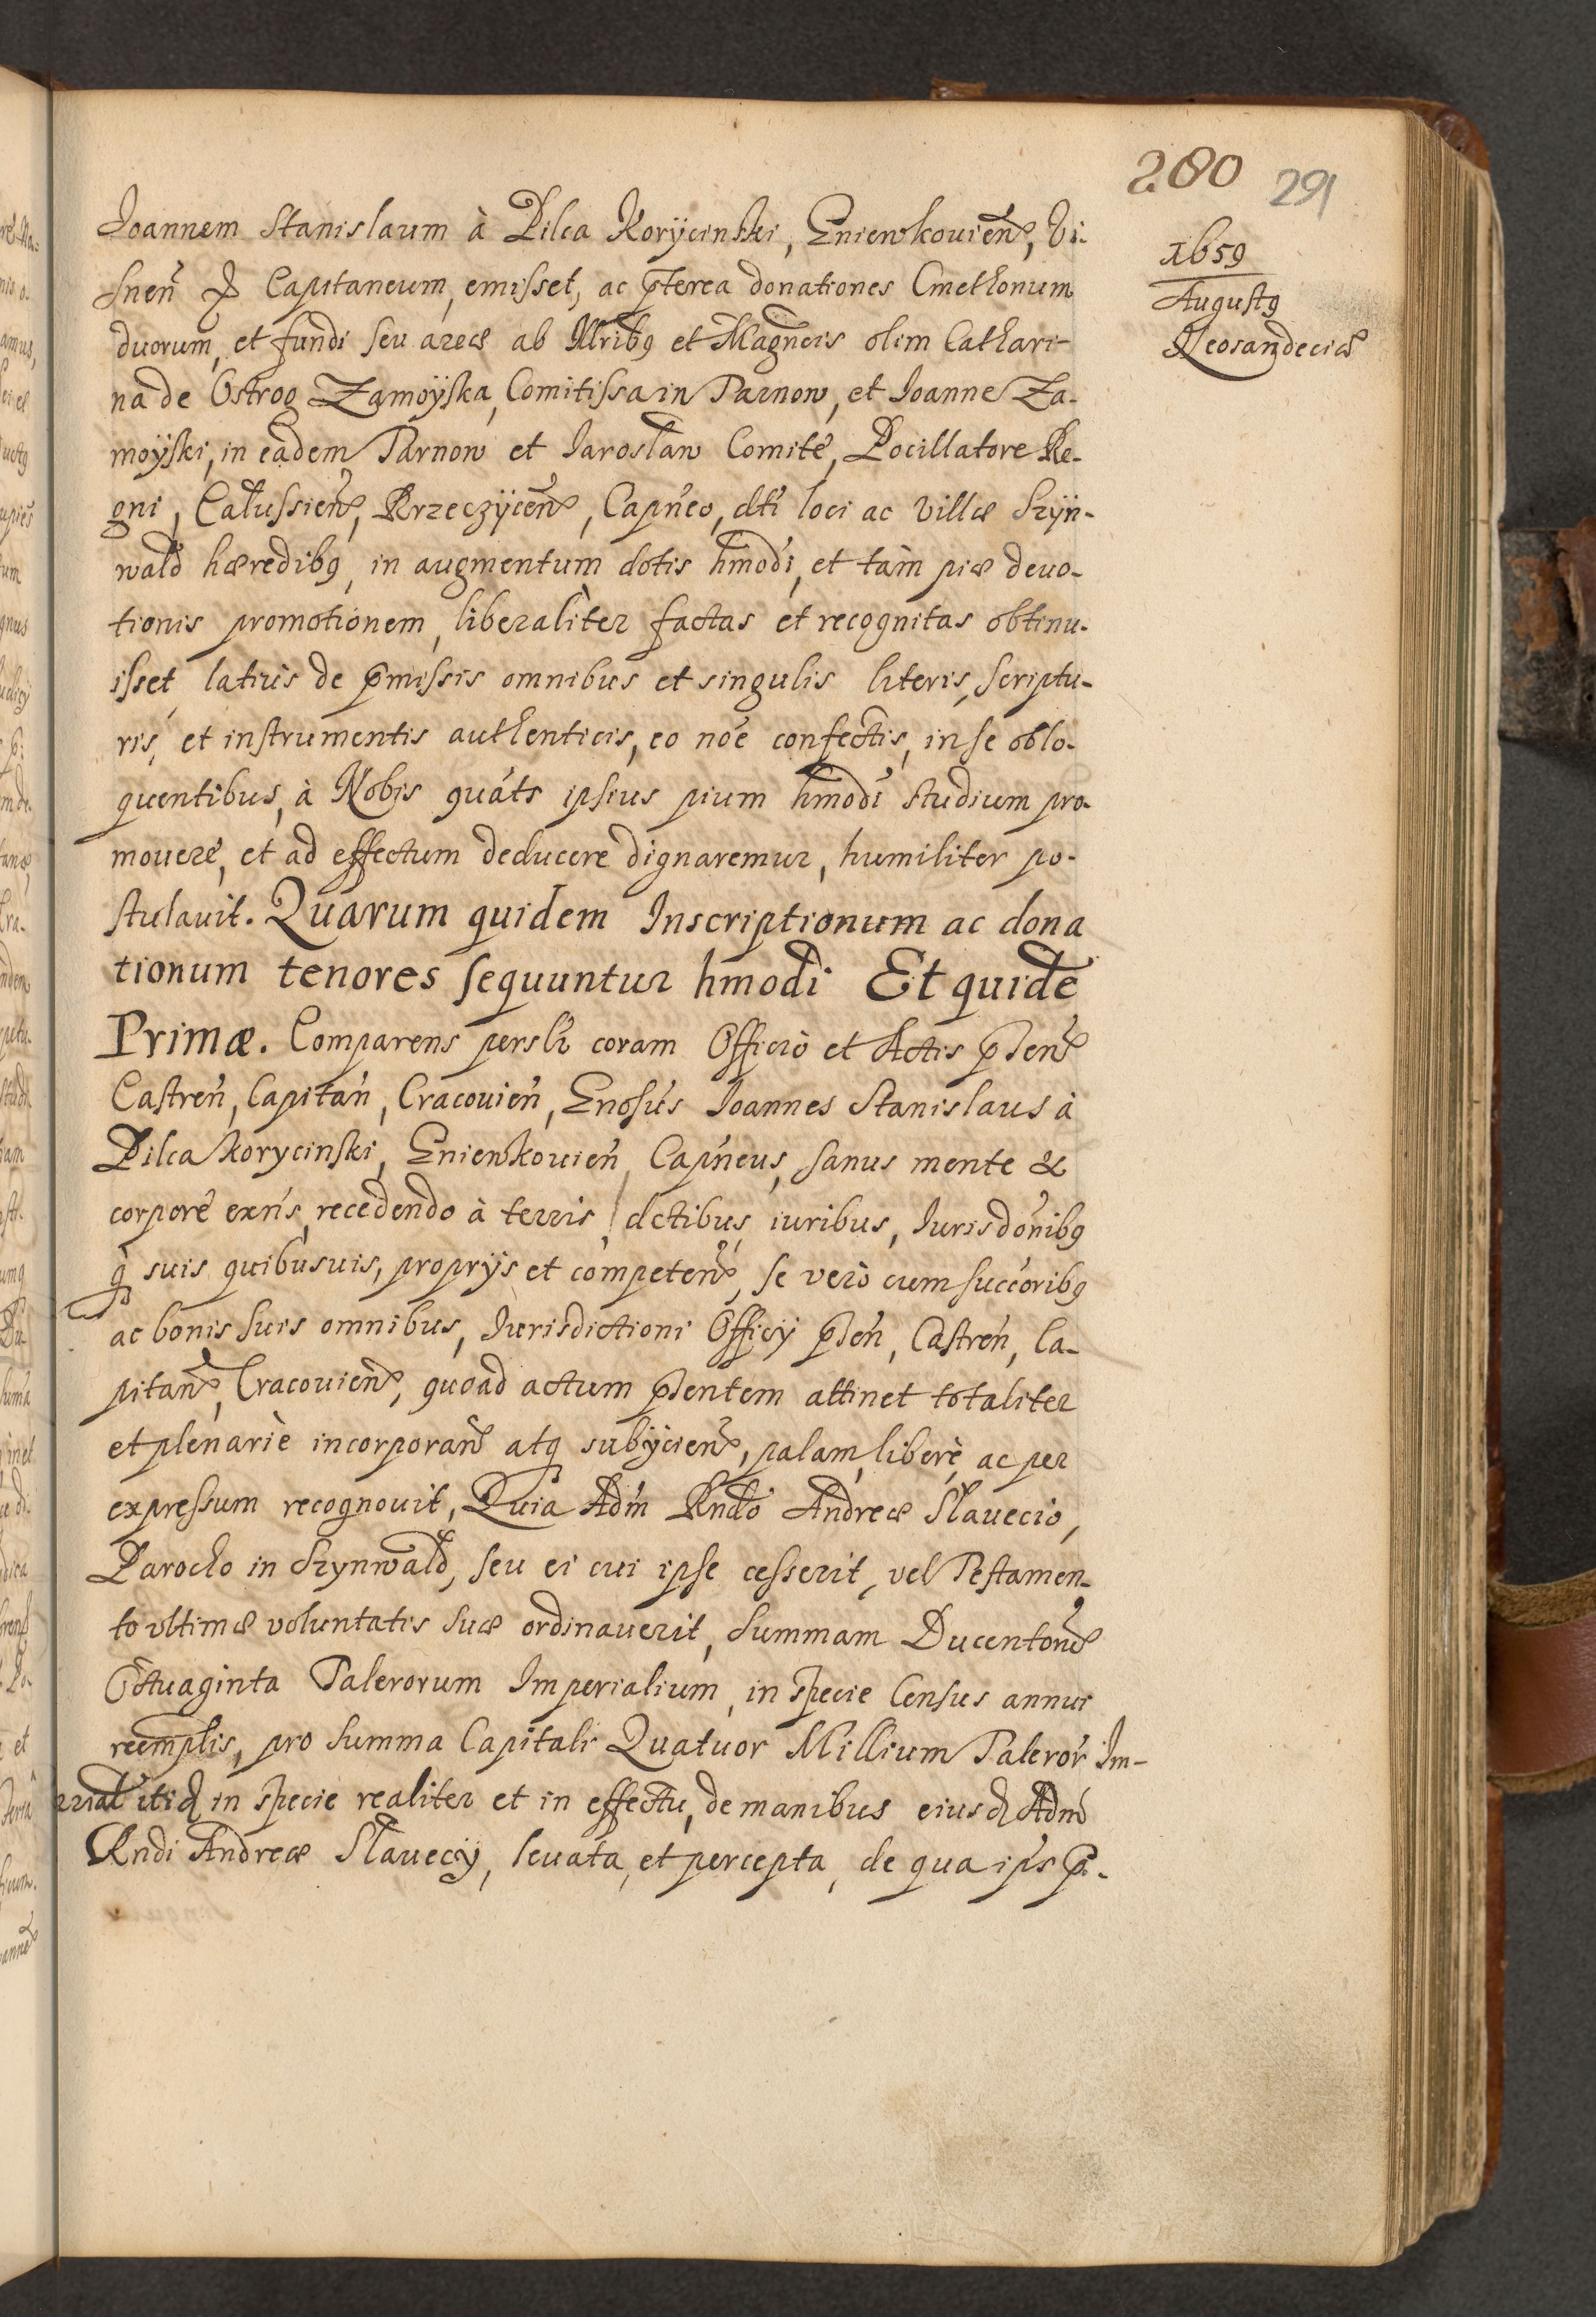 280 291
1659
Augustg
Neosandeciæ
Joannem Stanislaum à Pilca Korÿcinski, Gniewkouien, Vi-
snen Capitaneum, emisset, ac pterea donationes Cmethonum
duorum, et fundi seu areæ ab Illribg et Magncis olim Cathari-
na de Ostrog Zamoÿska, Comitissa in Tarnow, et Joanne Za-
moÿski, in eadem Tarnow et Jaroslaw Comite, Pocillatore Re-
gni, Calussien, Rzeczÿcen, Capneo, dti loci ac Villæ Szÿn-
wald hæredibg, in augmentum dotis hmodi, et tàm piæ deuo-
tionis promotionem, liberaliter factas et recognitas obtinu-
isset, latiùs de pmissis omnibus et singulis literis, scriptu-
ris, et instrumentis authenticis, eo noe confectis, in se oblo-
quentibus, à Nobis quats ipsius pium hmodi studium pro-
mouere, et ad effectum deducere dignaremur, humiliter po-
stulauit. Quarum quidem Inscriptionum ac dona
tionum tenores sequuntur hmodi Et quide
Primæ. Comparens persLr coram Officio et Actis psen
Castren, Capitan, Cracouien, Gnosus Joannes Stanislaus à
Pilca Korycinski, Gniewkouien Capneus, sanus mente &
corpore exns, recedendo à terris, dctibus, iuribus, Jurisdonibg
q suis quibusuis, proprÿs et competen, se verò cum succoribg
ac bonis suis omnibus, Jurisdictioni Officÿ psen, Castren, Ca-
pitan, Cracouien, quoad actum psentem attinet totaliter
et plenariè incorporan atq subÿcien, palam, liberè, ac per
expressum recognouit, Quia Adm Rndo Andreæ Slauecio,
Parocho in Szynwald, seu ei cui ipse cesserit, vel Testamen-
to vltimæ voluntatis suæ ordinauerit, Summam Ducentor
Octuaginta Talerorum Imperialium, in specie Census annui
reemplis, pro Summa Capitali Quatuor Millium Taleror Im-
rial itid in specie realiter et in effectu, de manibus eiusd Adm
Rndi Andreæ Slauecÿ, leuata, et percepta, de qua ips p-